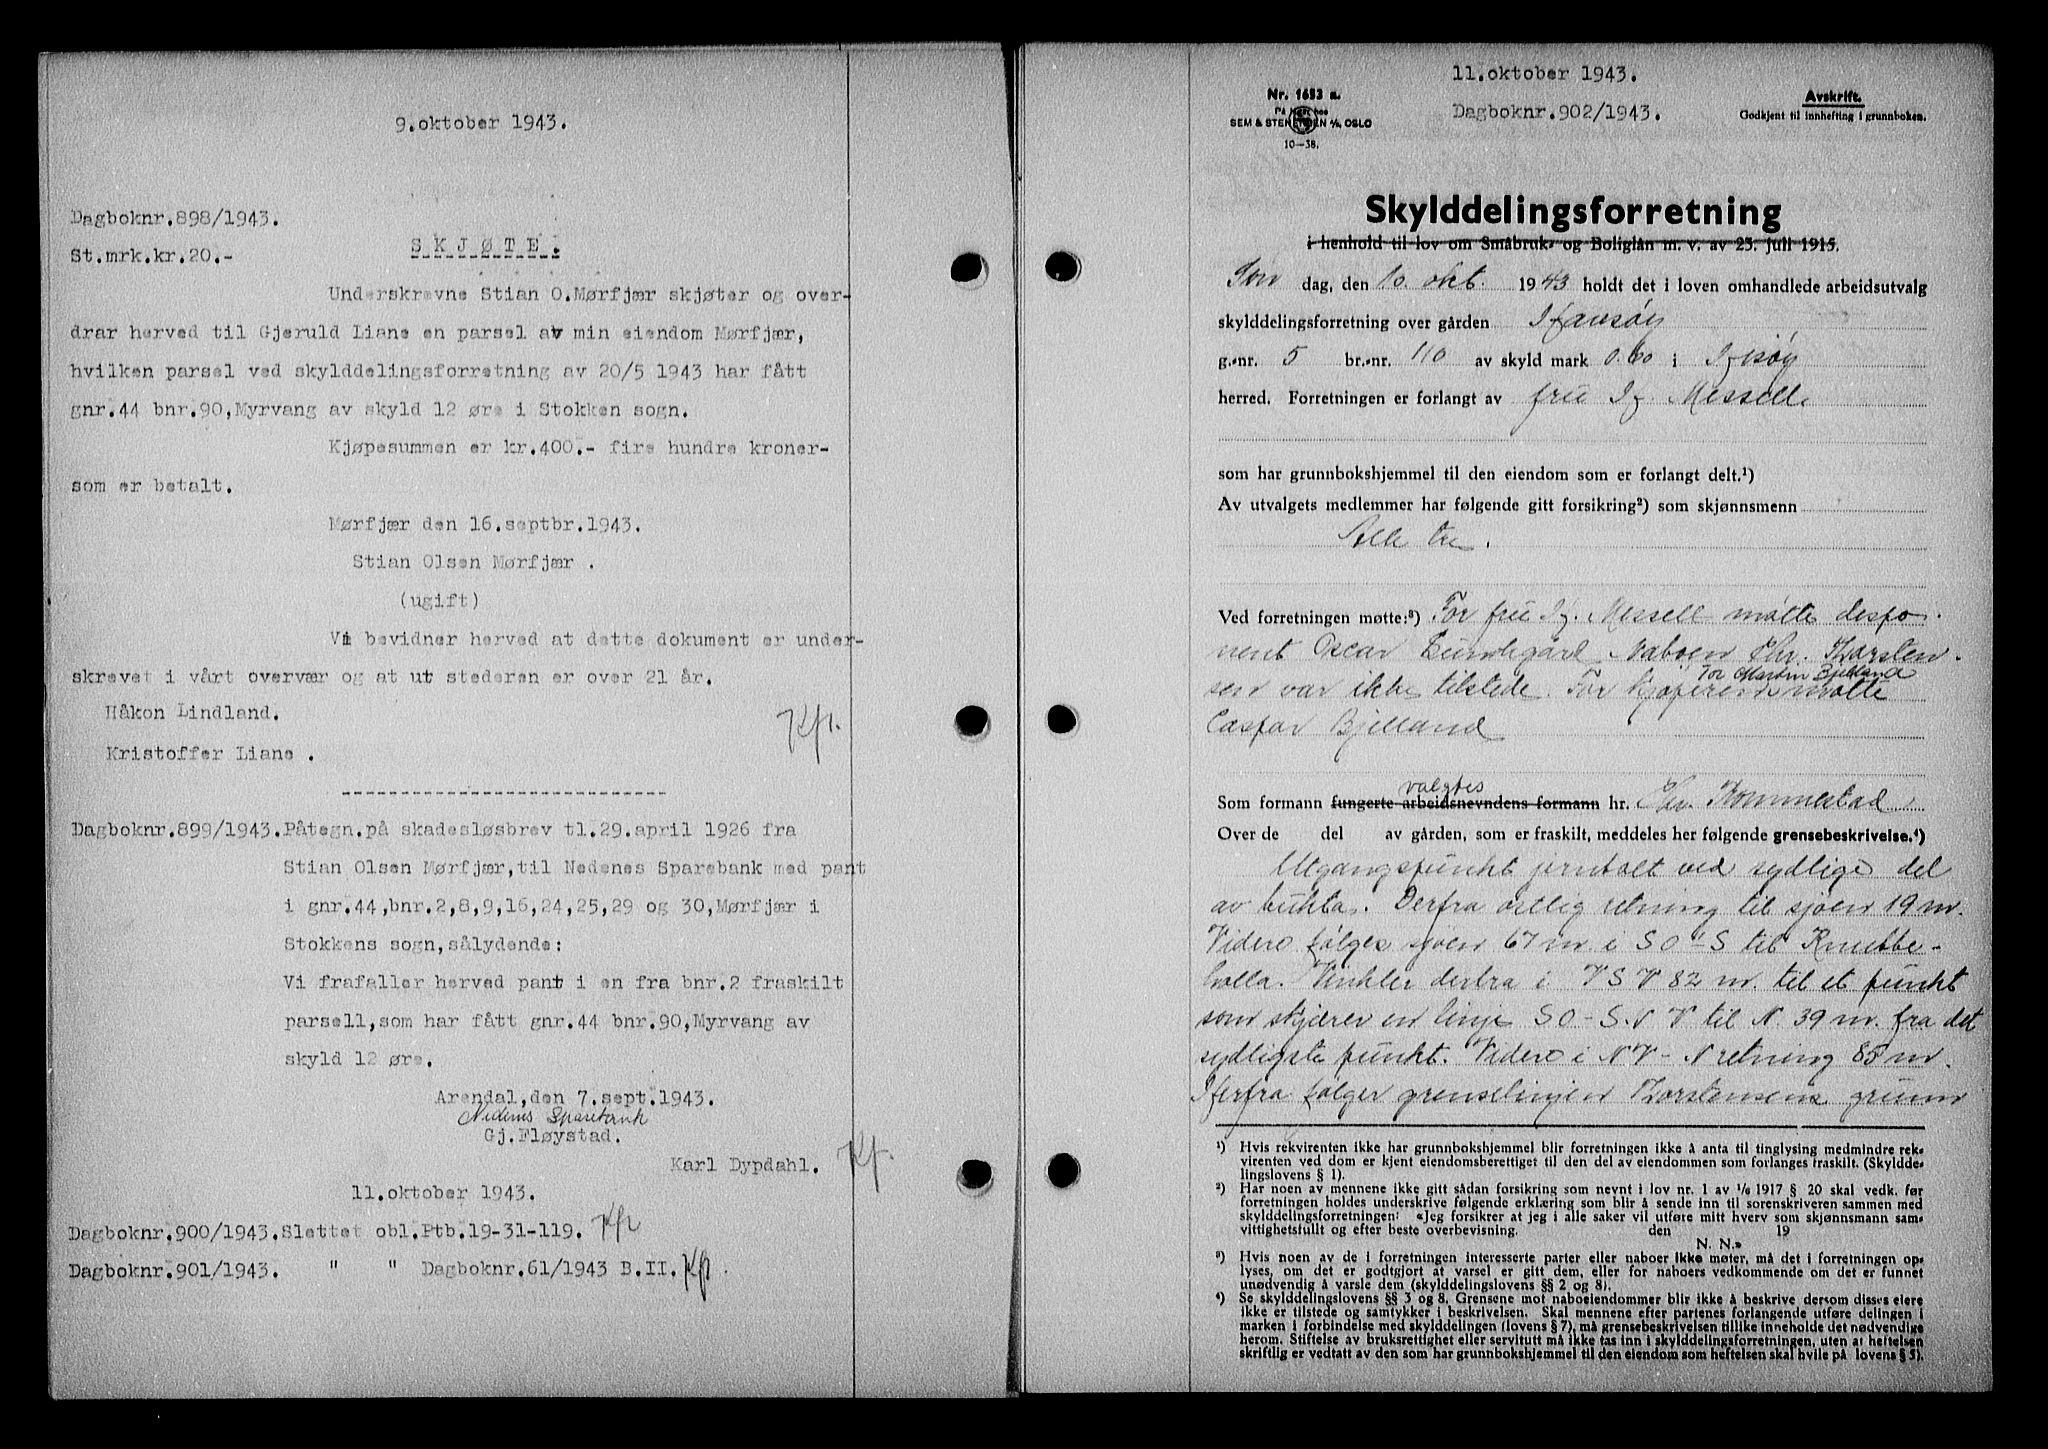 9.oktober 1943.
Dagboknr.898/1943.
St.mrk.kr.20.-
SKJØTE.
Underskrevne Stian O.Mørfjær skjøter og over-
drar herved til Gjeruld Liane en parsel av min eiendom Mørfjær,
hvilken parsel ved skylddelingsforretning av 20/5 1943 har fått
gnr.44 bnr.90,Myrvang av skyld 12 øre i Stokken sogn.
Kjøpesummen er kr.400.- fire hundre kroner-
som er betalt.
Mørfjær den 16.septbr.1943.
Stian Olsen Mørfjær .
(ugift)
Vi bevidner herved at dette dokument er under-
skrevet i vårt overvær og at ut stederen er over 21 år.
Håkon Lindland.
Kristoffer Liane .
----------------------------
Dagboknr.899/1943.Påtegn.på skadesløsbrev tl.29.april 1926 fra
Stian Olsen Mørfjær,til Nedenes Sparebank med pant
i gnr.44,bnr.2,8,9,16,24,25,29 og 30,Mørfjær i
Stokkens sogn,sålydende:
Vi frafaller herved pant i en fra bnr.2 fraskilt
parsell,som har fått gnr.44 bnr.90,Myrvang av
skyld 12 øre.
Arendal,den 7.sept.1943.
Nedenes Sparebank
Gj.Fløystad.
Karl Dypdahl.
11.oktober 1943.
Dagboknr.900/1943.Slettet obl.Ptb.19-31-119.
Dagboknr.901/1943. " " Dagboknr.61/1943 B.II.
11.oktober 1943.
Dagboknr.902/1943.
Nr. 1653 a.
SEM & STENERSEN A/S, OSLO
10—38.
Avskrift.
Godkjent til innhefting i grunnboken.
Skylddelingsforretning
i henhold til lov om Småbruk- og Boliglån m. v. av 23. juli 1915.
Søn dag, den 10. okt. 1943 holdt det i loven omhandlede arbeidsutvalg
skylddelingsforretning over gården
g.-nr. 5 br.-nr. 110 av skyld mark 0.60 i
herred. Forretningen er forlangt av fru Messell
som har grunnbokshjemmel til den eiendom som er forlangt delt.¹)
Av utvalgets medlemmer har følgende gitt forsikring²) som skjønnsmenn
Alle tre.
Ved forretningen møtte:³) For fru Messell møtte dispo-
nent Oscar Naboen Chr. Thorsten-
sen var ikke tilstede. For kjøperen For Martin Bjelland møtte
Caspar Bjelland
valgtes
Som formann fungerte arbeidsnevndens formann hr. Chr. Kommestad
Over de del av gården, som er fraskilt, meddeles her følgende grensebeskrivelse.⁴)
Utgangspunkt jernbolt ved sydlige del
av bukta. Derfra østlig retning til sjøen 19 m.
Videre følges sjøen 67 m i SO-S til Knubbe-
holla. Vinkler derfra i VSV 82 m. til et punkt
som skjærer en linje SO-S.NV til N. 39 m. fra det
sydligste punkt. Videre i NV-N retning 85 m.
Herfra følger grenselinjen Thorstensens grunn
¹) Hvis rekvirenten ikke har grunnbokshjemmel blir forretningen ikke å anta til tinglysing medmindre rek-
virenten ved dom er kjent eiendomsberettiget til den del av eiendommen som forlanges fraskilt. (Skyldde-
lingslovens § 1).
²) Har noen av mennene ikke gitt sådan forsikring som nevnt i lov nr. 1 av 1/6 1917 § 20 skal vedk. før
forretningen holdes underskrive følgende erklæring som blir å sende inn til sorenskriveren sammen med
skylddelingsforretningen: «Jeg forsikrer at jeg i alle saker vil utføre mitt hverv som skjønnsmann sam-
vittighetsfullt og efter beste overbevisning. den 19
N. N.»
³) Hvis noen av de i forretningen interesserte parter eller naboer ikke møter, må det i forretningen op-
lyses, om det er godtgjort at varsel er gitt dem, eller for naboers vedkommende om det er funnet
unødvendig å varsle dem (skylddelingslovens §§ 2 og 8).
⁴) Se skylddelingslovens §§ 3 og 8. Grensene mot naboeiendommer blir ikke å beskrive dersom disses eiere
ikke er tilstede og samtykker i beskrivelsen. Skal mennene efter partenes forlangende utføre delingen i
marken i forbindelse med skylddelingen (lovens § 7), må grensebeskrivelsen tillike inneholde det nødvendige
herom. Stiftelse av bruksrettighet eller servitutt må ikke tas inn i skylddelingsforretningen, uten at heftelsen
skriftlig er vedtatt av den som har grunnbokshjemmel til den eiendom som heftelsen skal hvile på (lovens § 5).